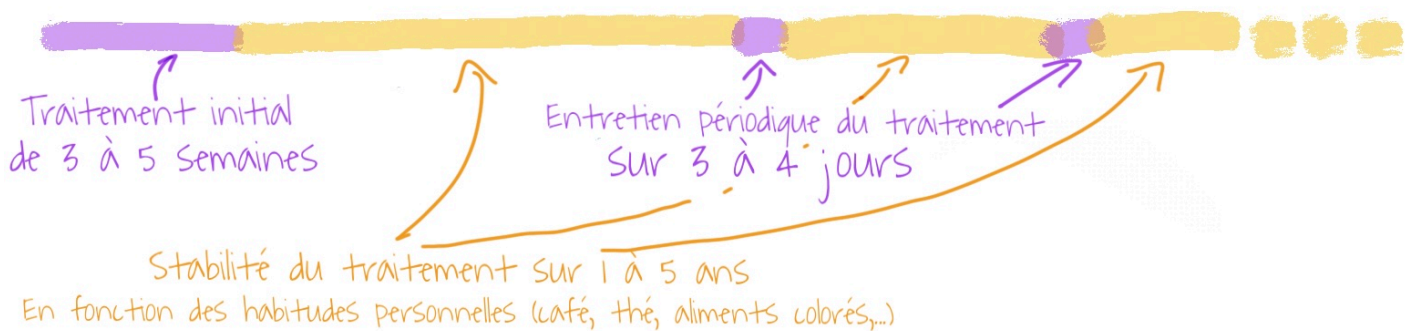 Traitement initial
de 3 à 5 semaines
Entretien périodique du traitement
sur 3 à 4 jours
Stabilité du traitement sur 1 à 5 ans
En fonction des habitudes personnelles (café, thé, aliments colorés,...)